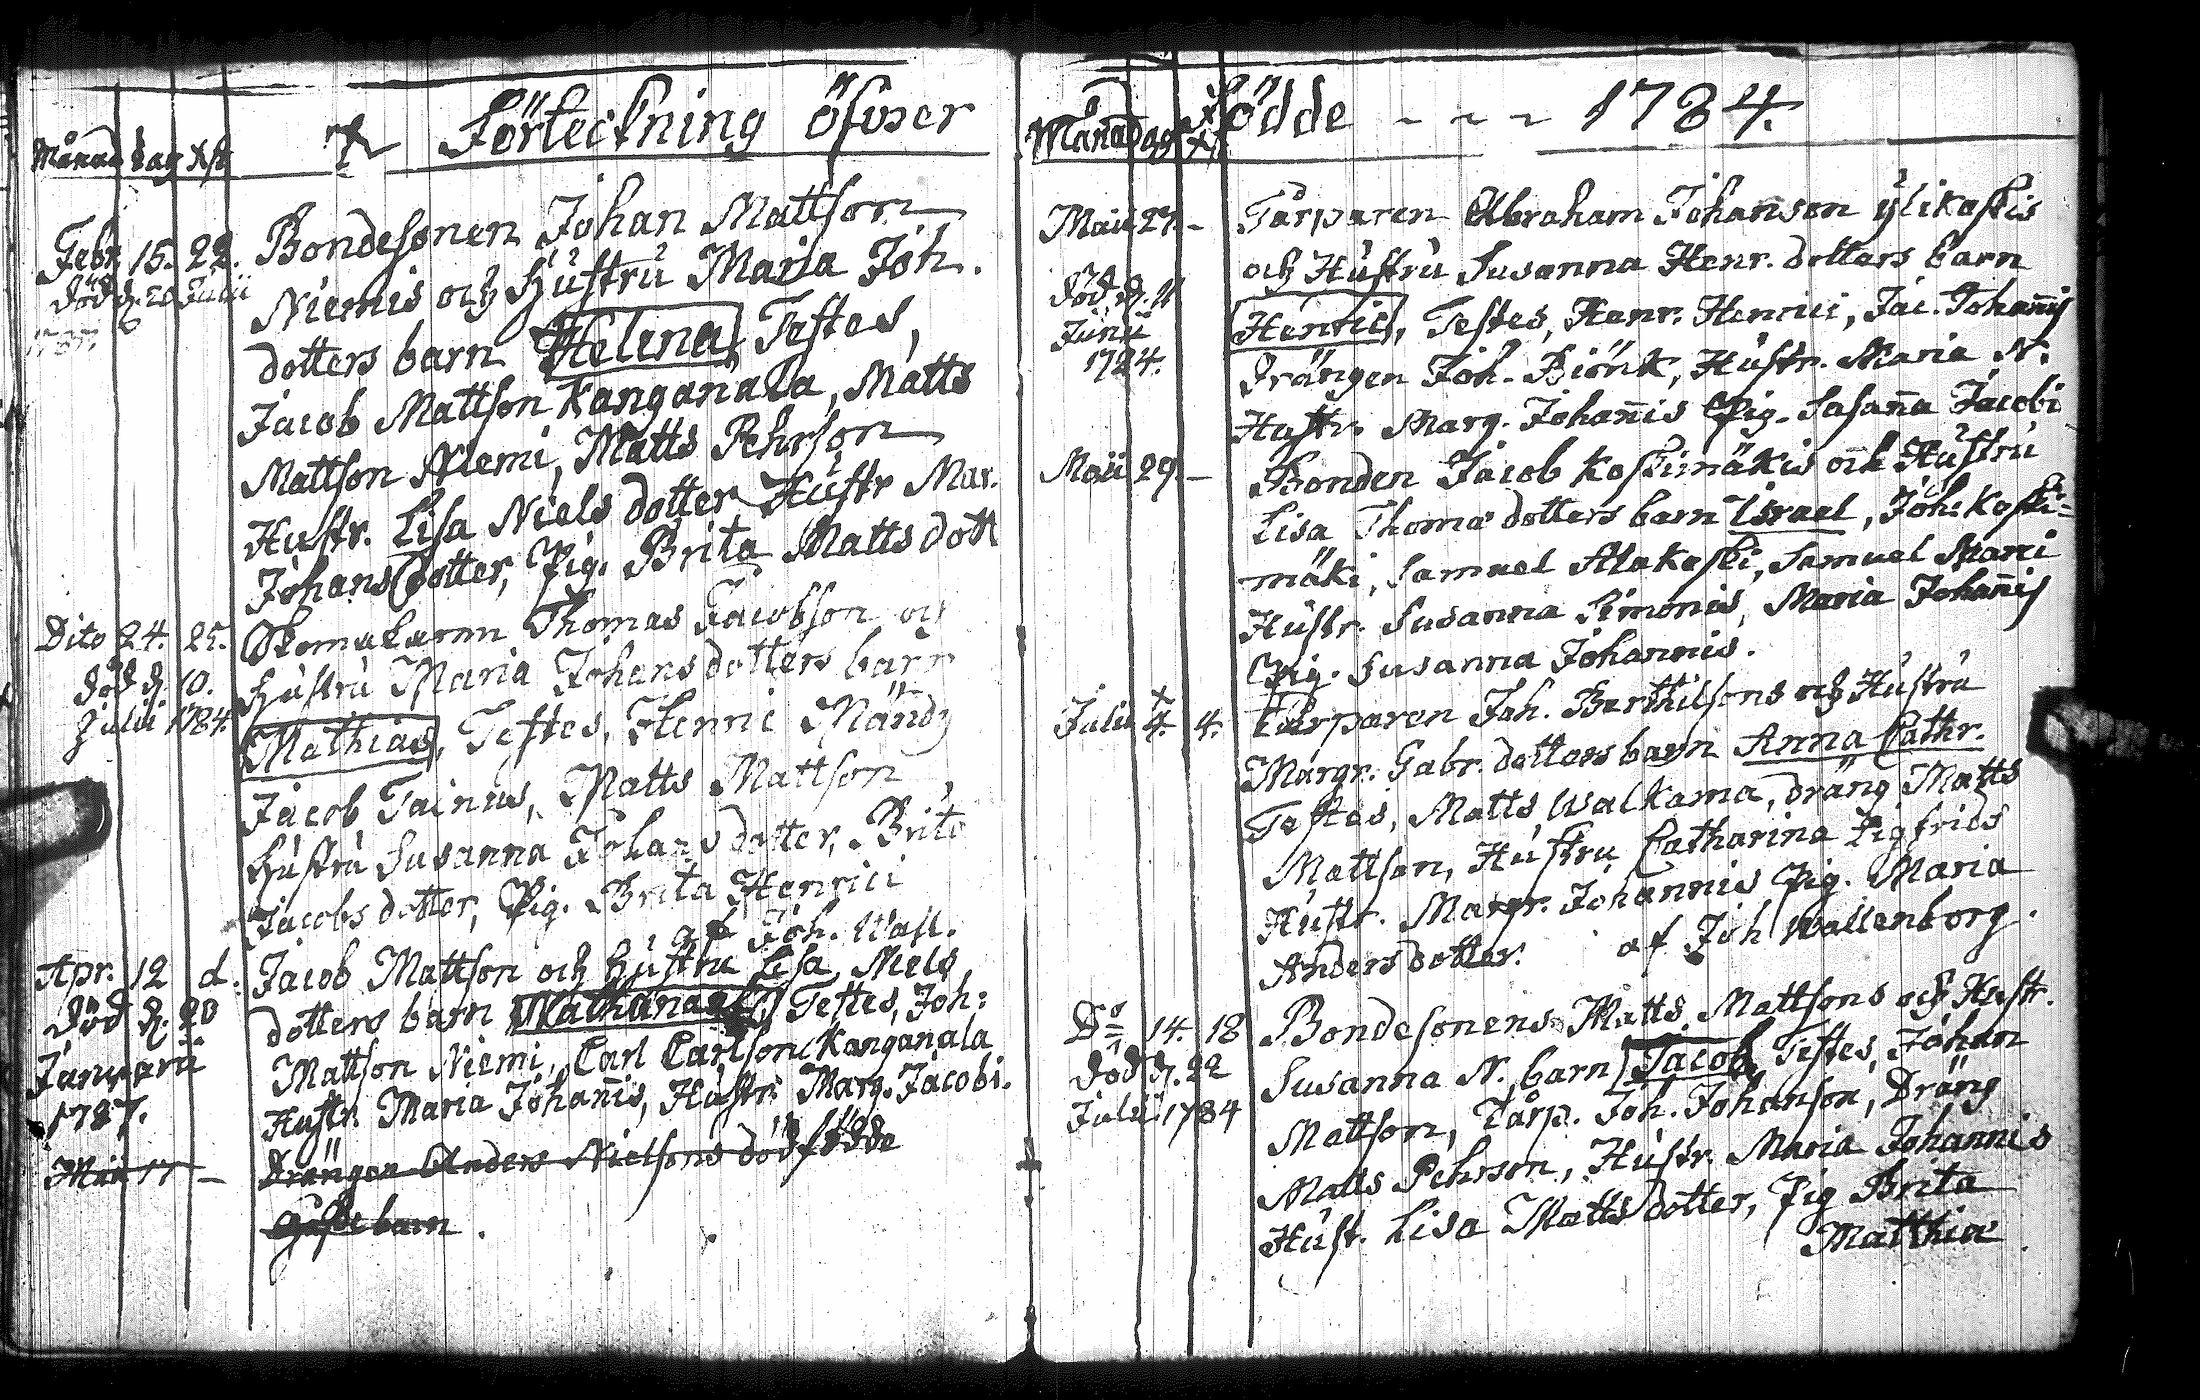 Förteckning öfwer
Månad dag Xst
Febr. 15. 22. Bondesonen Johan Mattson
död d. 20 Julii Niemis och Hustru Maria Joh.
1787. dotters barn Helena, Testes,
Jacob Mattson Kanganala, Matts
Mattson Niemi, Matts Pehrson
Hustr. Lisa Niels dotter Hustr Mar.
Johans dotter, Pig. Brita Matts dott
Dito 24. 25. Skomakaren Thomas Jacobson och
död d. 10. Hustru Maria Johans dotters barn
Julii 1784. Mathias, Testes, Henric
Jacob Tainus, Matts Mattson
Hustru Susanna Johans dotter, Brita
Jacobs dotter, Pig. Brita Henrici
af Joh. Wall.
Apr. 12 d. Jacob Mattson och Hustru Lisa Niels
död d. 20 dotters barn Nathanael, Testes, Joh:
Januarii Mattson Niemi, Carl Carlson Kanganala
1787. Hustr. Maria Johañis, Hustr. Marg. Jacobi.
Maii 17 – Drängen Anders Nielsons dödfödde
barn.
Födde - - - 1784.
Månad dag Xst
Maii 27. – Tårparen Abraham Johanson Ylikoskis
och Hustru Susanna Henr. dotters barn
död d. 4 Henric, Testes, Henr. Henrici, Jac. Johañis
Junii Drängen Joh. Biönk, Hustr. Maria N.
1784. Hustr. Marg. Johañis Pig. Susaña Jacobi
Maii 29. – Bonden Jacob Koskimäkis och Hustru
Lisa Thomæ dotters barn Israel, Joh: Koski-
mäki, Samuel Alakoski, Samuel
Hustr. Susanna Simonis, Maria Johañis
Pig. Susanna Johannis.
Julii 4. 4. Tårparen Joh. Berthilsons och Hustru
Margr. Gabr. dotters barn Anna Cathr.
Testes, Matts Walkama, dräng Matts
Mattson, Hustru Catharina Sigfrids
Hustr. Margr. Johannis Pig. Maria
Anders dotter. af Joh Wallenborg.
Do 14. 18 Bondesonens Matts Mattsons och Hustr.
död d. 22 Susanna N. barn Jacob, Testes, Johan
Julii 1784 Mattson, Tårp. Joh. Johanson, Dräng
Matts Pehrson, Hustr. Maria Johannis
Hust. Lisa Matts dotter, Pig Brita
Matthiæ